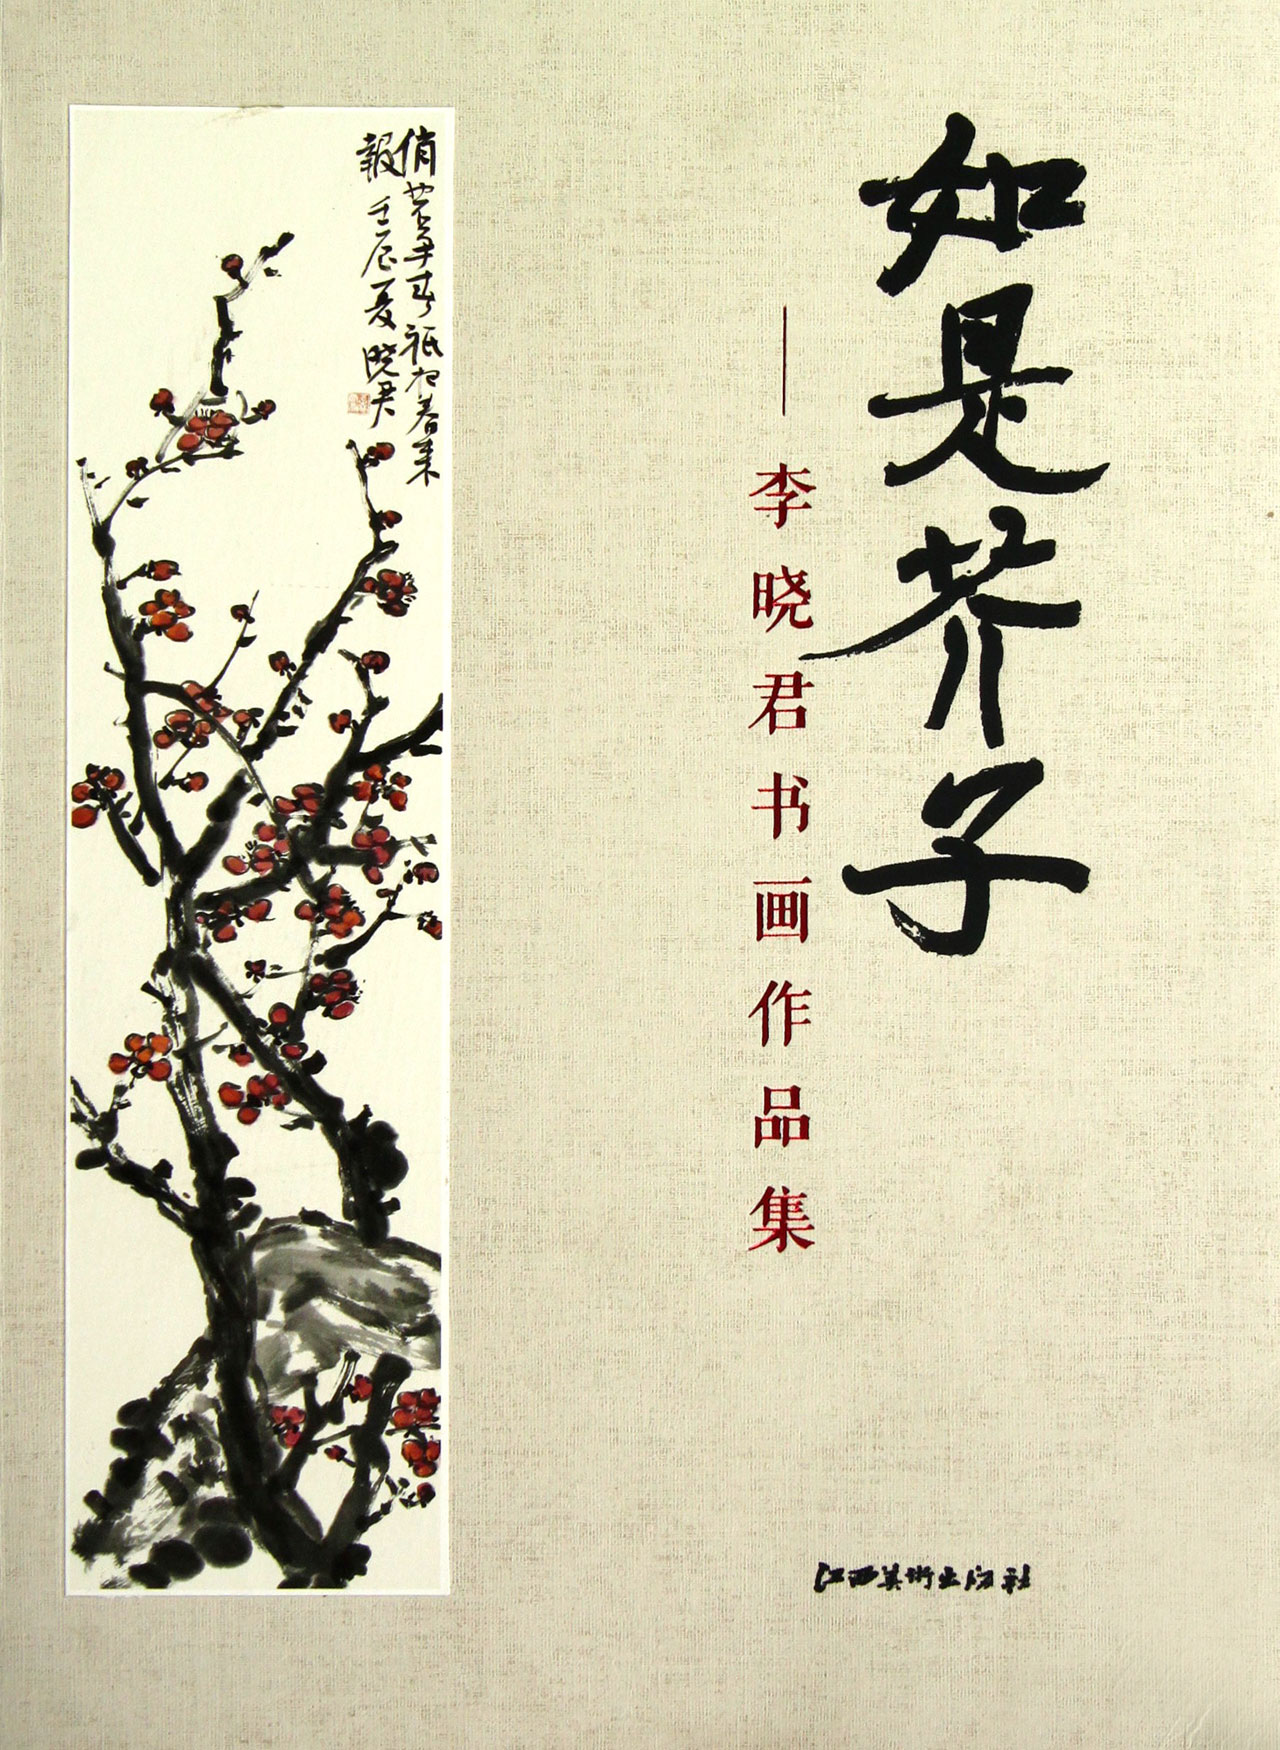 如是芥子
——李晓君书画作品集
俏也不争春祗把春来
報 壬辰夏 晓君
江西美术出版社